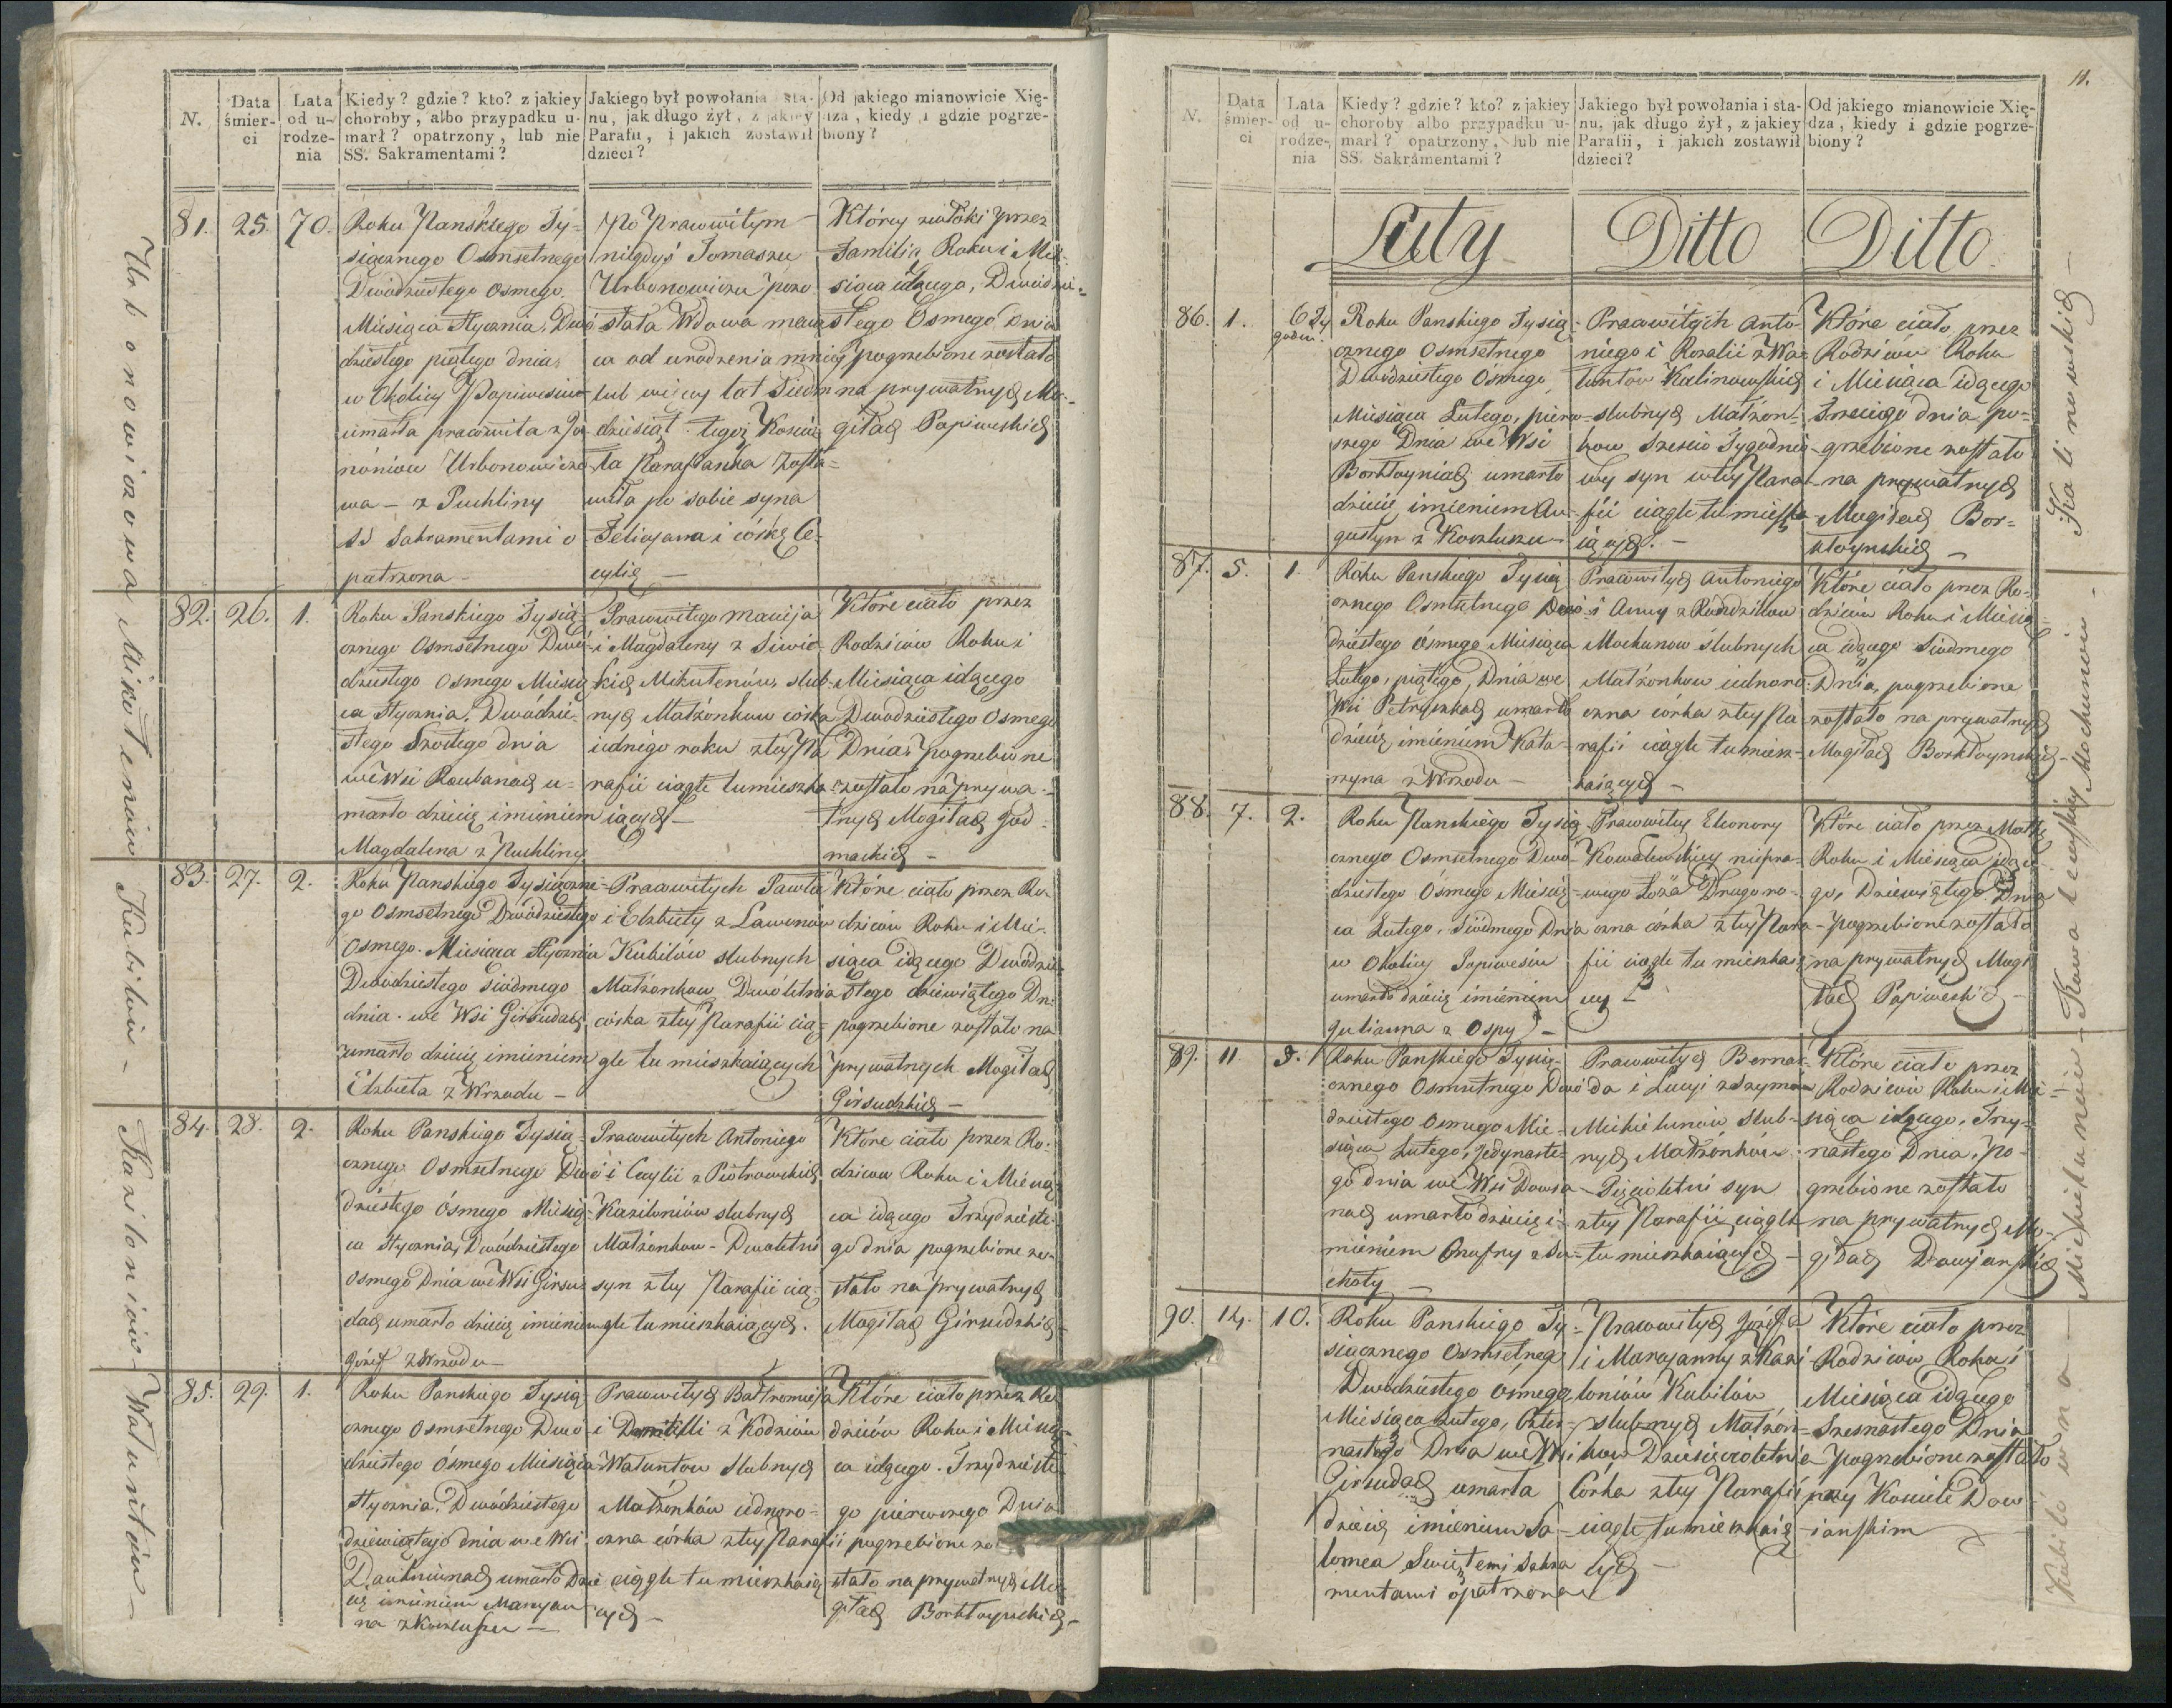 N.
Data śmier- ci
Lata od u- rodze- nia
Kiedy? gdzie? kto? z jakiey
choroby, albo przypadku u-
marł? opatrzony, lub nie
SS. Sakramentami?
Jakiego był powołania sta-
nu, jak długo żył, z jakiey
Parafii, i jakich zostawił
dzieci?
Od jakiego mianowicie Xię-
dza, kiedy i gdzie pogrze-
biony?
Urbonowiczowa Mikołenow Kubilow - Kazilonow - Watuntow -
81. 25. 70.
Roku Panskiego Ty-
siącznego Osmsetnego
Dwódziestego Osmego
Miesiąca Stycznia, Dwó
dziestego piątego dnia
w Okolicy Popiwesiu
umarła prawowita z Ja
nóniow Urbonowiczo
wa - z Puchliny
SS Sakramentami o
patrzona -
Po Prawowitym
niegdyś Tomaszu
Urbonowiczu pozo
stała Wdowa maią
ca od urodzenia mniey
lub więcey lat Siedm
dziesiąt tegoż Koscio
ła Parafianka Zosta=
wiła po sobie syna
Felicyana i córkę Ce-
cylię -
Którey zwłoki przez
Familią Roku i Mie-
siąca idącego, Dwódzie-
stego Osmego dnia
pogrzebione zostało
na prywatnych Mo-
giłach Popiweskich
82. 26. 1.
Roku Panskiego Tysią-
cznego Osmsetnego Dwó-
dziestego Osmego Miesią
ca Stycznia, Dwódzie-
stego Szostego dnia
we Wsi Roubanach u-
marło dziecię imieniem
Magdalena z Puchliny
Prawowitego Macieja
i Magdaleny z Siwic-
kich Mikutenów, slub-
nych Małżonkow córka
iednego roku z tey Pa
rafii ciągle tu mieszka
iących -
Które ciało przez
Rodziców Roku i
Miesiąca idącego
Dwodziestego Osmego
Dnia pogrzebione
zostało na prywa-
tnych Mogiłach God-
mackich -
83. 27. 2.
Roku Panskiego Tysiączne-
go Osmsetnego Dwódziestego
Osmego Miesiąca Stycznia
Dwódziestego Siódmego
dnia we Wsi Girsudach
umarło dziecię imieniem
Elzbieta z Wrzodu -
Prawowitych Pawła
i Elzbiety z Lawenow
Kubilów slubnych
Małżonkow Dwóletnia
córka z tey Parafii cią-
gle tu mieszkaiących
Które ciało przez Ro-
dziców Roku i Mie-
siąca idącego Dwódzie-
stego dziewiątego Dn-
pogrzebione zostało na
prywatnych Mogiłach
Girsudzkich -
84. 28. 2.
Roku Panskiego Tysią-
cznego Osmsetnego Dwó
dziestego Ósmego Miesią-
ca Stycznia, Dwódziestego
Osmego Dnia we Wsi Girsu-
dach umarło dziecię imieniem
Józef z Wrzodu -
Prawowitych Antoniego
i Cecylii z Piotrowskich
Kaziloniów slubnych
Małżonkow - Dwoletni
syn z tey Parafii cią-
gle tu mieszkaiących.
Które ciało przez Ro-
dziców Roku i Miesią
ca idącego Trzydzieste-
go dnia pogrzebione zo-
stało na prywatnych
Mogiłach Girsudzkich
85. 29. 1.
Roku Panskiego Tysią-
cznego Osmsetnego Dwó
dziestego Ósmego Miesiąca
Stycznia, Dwódziestego
dziewiątego dnia we Wsi
Daukniunach umarło Dzie
cię imieniem Maryan
na z Kokluszu -
Prawowitych Bałtromieja
i Domicelli z Kodziów
Watuntow Slubnych
Małżonków iednoro-
czna córka z tey Parafii
ciągle tu mieszkaią
cych -
Które ciało przez Ro
dziców Roku i Miesią-
ca idącego Trzydzieste
go pierwszego Dnia
pogrzebione zo
stało na prywatnych Mo-
giłach Borkłoynskich -
11.
N.
Data śmier- ci
Lata od u- rodze- nia
Kiedy? gdzie? kto? z jakiey
choroby albo przypadku u-
marł? opatrzony, lub nie
SS. Sakramentami?
Jakiego był powołania i sta-
nu, jak długo żył, z jakiey
Parafii, i jakich zostawił
dzieci?
Od jakiego mianowicie Xię-
dza, kiedy i gdzie pogrze-
biony?
Luty Ditto Ditto
86. 1. 6 Ty godni.
Roku Panskiego Tysią-
cznego Osmsetnego
Dwódziestego Osmego
Miesiąca Lutego, pierw-
szego Dnia we Wsi
Borkłoyniach umarło
dziecię imieniem Au-
gustyn z Kokluszu -
Prawowitych Anto-
niego i Rozalii z Wa-
tuntow Kalinowskich
slubnych Małżon-
kow Szescio Tygodnio-
wy syn w tey Para-
fii ciągle tu mieszka-
iących. -
Które ciało przez
Rodziców Roku
i Miesiąca idącego
Trzeciego dnia po-
grzebione zostało
na prywatnych
Mogiłach Bor-
kłoynskich -
87. 5. 1.
Roku Panskiego Tysią
cznego Osmsetnego Dwó
dziestego ósmego Miesiąca
Lutego, piątego, Dnia we
Wsi Petryszkach umarło
dziecię imieniem Kata-
rzyna z Wrzodu -
Prawowitych Antoniego
i Anny z Rondzilow
Mochunow slubnych
Małżonkow iednoro-
czna córka z tey Pa
rafii ciągle tu miesz-
kaiących -
Które ciało przez Ro-
dziców Roku i Miesią-
ca idącego Siodmego
Dnia, pogrzebione
zostało na prywatnych
Mogiłach Borkłoynskich -
88. 7. 2.
Roku Panskiego Tysią
cznego Osmsetnego Dwó-
dziestego Ósmego Miesią-
ca Lutego, Siódmego Dnia
w Okolicy Popiwesiu
umarło dziecię imieniem
Julianna z Ospy -
Prawowitey Eleonory
Kowalewskiey niepra-
wego Łoża Drugoro-
czna córka z tey Para-
fii ciągle tu mieszkaią
cey
Które ciało przez Matkę
Roku i Miesiąca idące-
go, Dziewiątego Dnia
pogrzebione zostało
na prywatnych Mogi
łach Popiweskich -
89. 11 5.
Roku Panskiego Tysią-
cznego Osmsetnego Dwó
dziestego Osmego Mie-
siąca Lutego, Jedynaste-
go dnia we Wsi Dowia
nach umarło dziecię i-
mieniem Onufry z Su-
choty -
Prawowitych Berna-
da i Łucyi z Szymon
Mickielunow slub-
nych Małżonków
Pięcioletni syn
z tey Parafii ciągle
tu mieszkaiących -
Które ciało przez
Rodziców Roku i Mie-
siąca idącego, Trzy-
nastego Dnia, po-
grzebione zostało
na prywatnych Mo-
giłach Dowjanskich
90. 14. 10.
Roku Panskiego Ty-
siącznego Osmsetnego
Dwódziestego osmego
Miesiąca Lutego, Czter-
nastego Dnia we Wsi
Girsudach umarła
dziecię imieniem Sa-
lomea Swiętemi Sakra
mentami opatrzona
Prawowitych Józefa
i Maryanny z Kazi
loniów Kubilów
slubnych Małżon-
kow Dziesięcioletnia
Córka z tey Parafii
ciągle tu mieszkaią-
cych -
Które ciało przez
Rodziców Roku i
Miesiąca idącego
Szesnastego Dnia
pogrzebione zostało
przy Kosciele Dow-
ianskim
Kubilowna - Mickielunow - Kowalewskiey Mochunow - Kalinowskich -